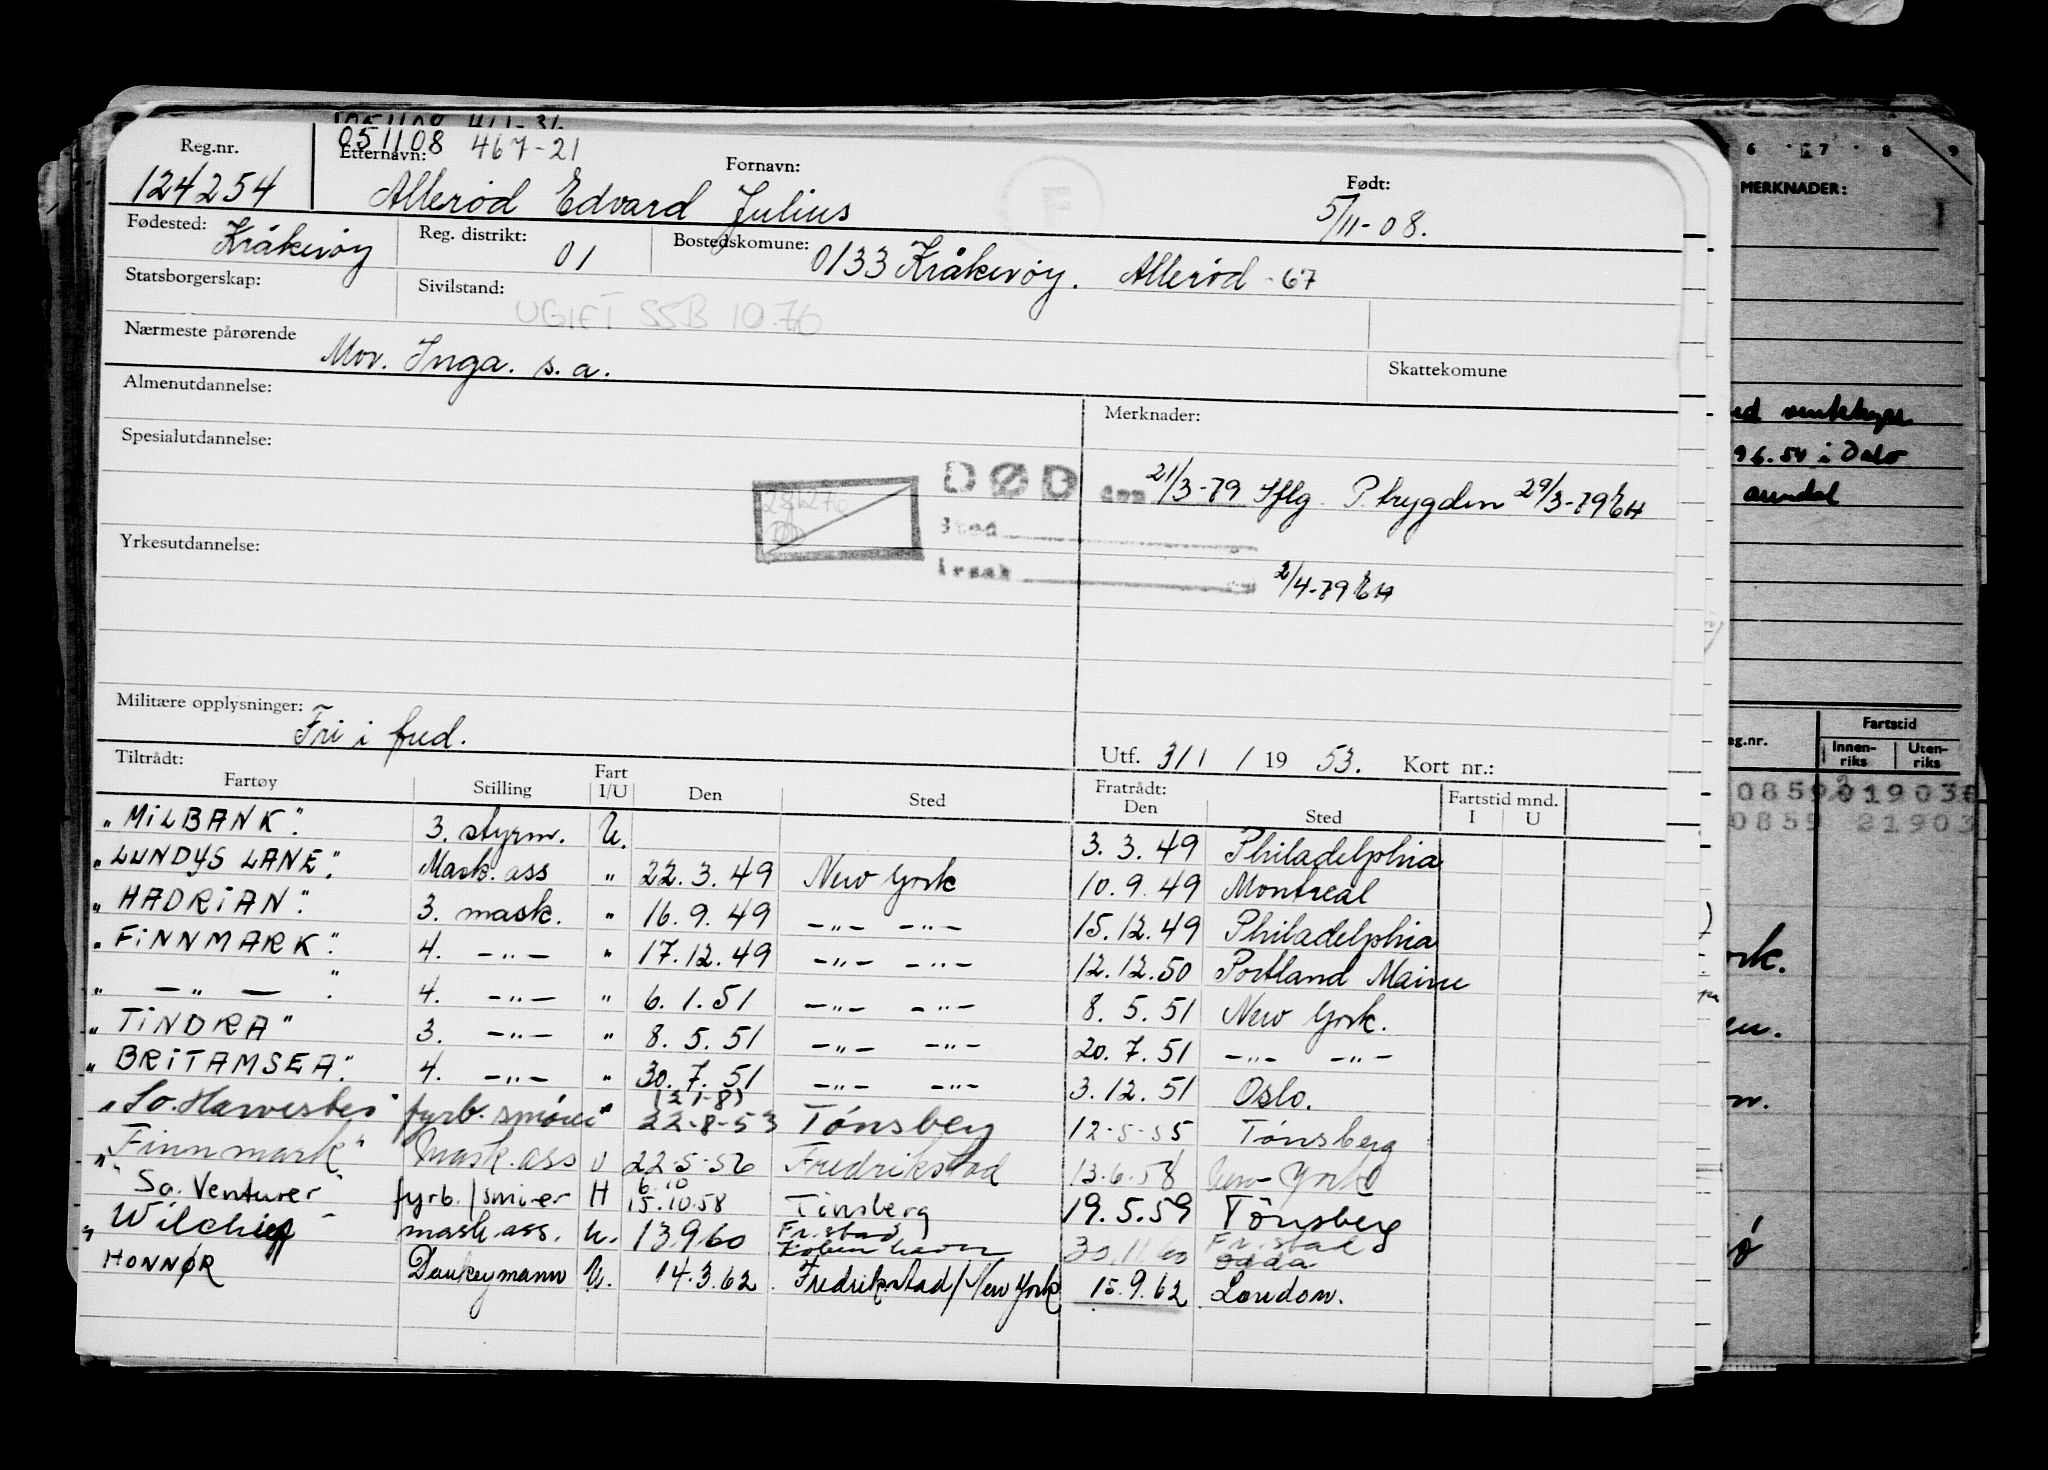 051108 467-21
Reg.nr. Etternavn: Fornavn: Født:
124254 Allerød Edvard Julius 5/11-08.
Fødested: Kråkerøy Reg. distrikt: 01 Bostedskomune: 0133 Kråkerøy. Allerød -67
Statsborgerskap: Sivilstand: UGIFT SSB 10.76
Nærmeste pårørende Mor. Inga. s. a. Skattekomune
Almenutdannelse: Merknader:
Spesialutdannelse:
DØD den 21/3-79 Iflg. P. trygden 29/3-79 EH
Sted
Yrkesutdannelse:
Årsak 2/4-79 EH
Militære opplysninger: Fri i fred.
Utf. 31/1 /19 53. Kort nr.:
Tiltrådt: Fratrådt:
Fartøy Stilling Fart I/U Den Sted Den Sted Fartstid mnd. I U
"MILBANK". 3. styrm. U. 3. 3. 49 Philadelphia
"LUNDYS LANE". Mask. ass " 22. 3. 49 New York 10. 9. 49 Montreal
"HADRIAN". 3. mask. " 16. 9. 49 -"- -"- 15. 12. 49 Philadelphia
"FINNMARK". 4. -"- " 17. 12. 49 -"- -"- 12. 12. 50 Portland Maine
" -"- ". 4. -"- " 6. 1. 51 -"- -"- 8. 5. 51 New York.
"TINDRA" 3. -"- " 8. 5. 51 -"- -"- 20. 7. 51 -"- -"-
"BRITAMSEA". 4. -"- " 30. 7. 51 -"- -"- 3. 12. 51 Oslo.
(21-8)
"So. Harvester" fyrb. smører " 22-8-53 Tønsberg 12-5-55 Tønsberg
"Finnmark" Mask. ass U 22-5-56 Fredrikstad 13-6-58 New York
6.10
"So. Venturer" fyrb./smører H 15.10.58 Tønsberg 19.5.59 Tønsberg
"Wilchief mask. ass. U. 13960 Fr.stad København 30.11.60 Fr.stad Odda
HONNØR Donkeymann U. 14.3.62 Fredrikstad/New York 15.9.62 London.
6 7 8 9
MERKNADER:
ventelager
96.54 i Oslo
arendal
eg.nr. Fartstid
Innenriks Utenriks